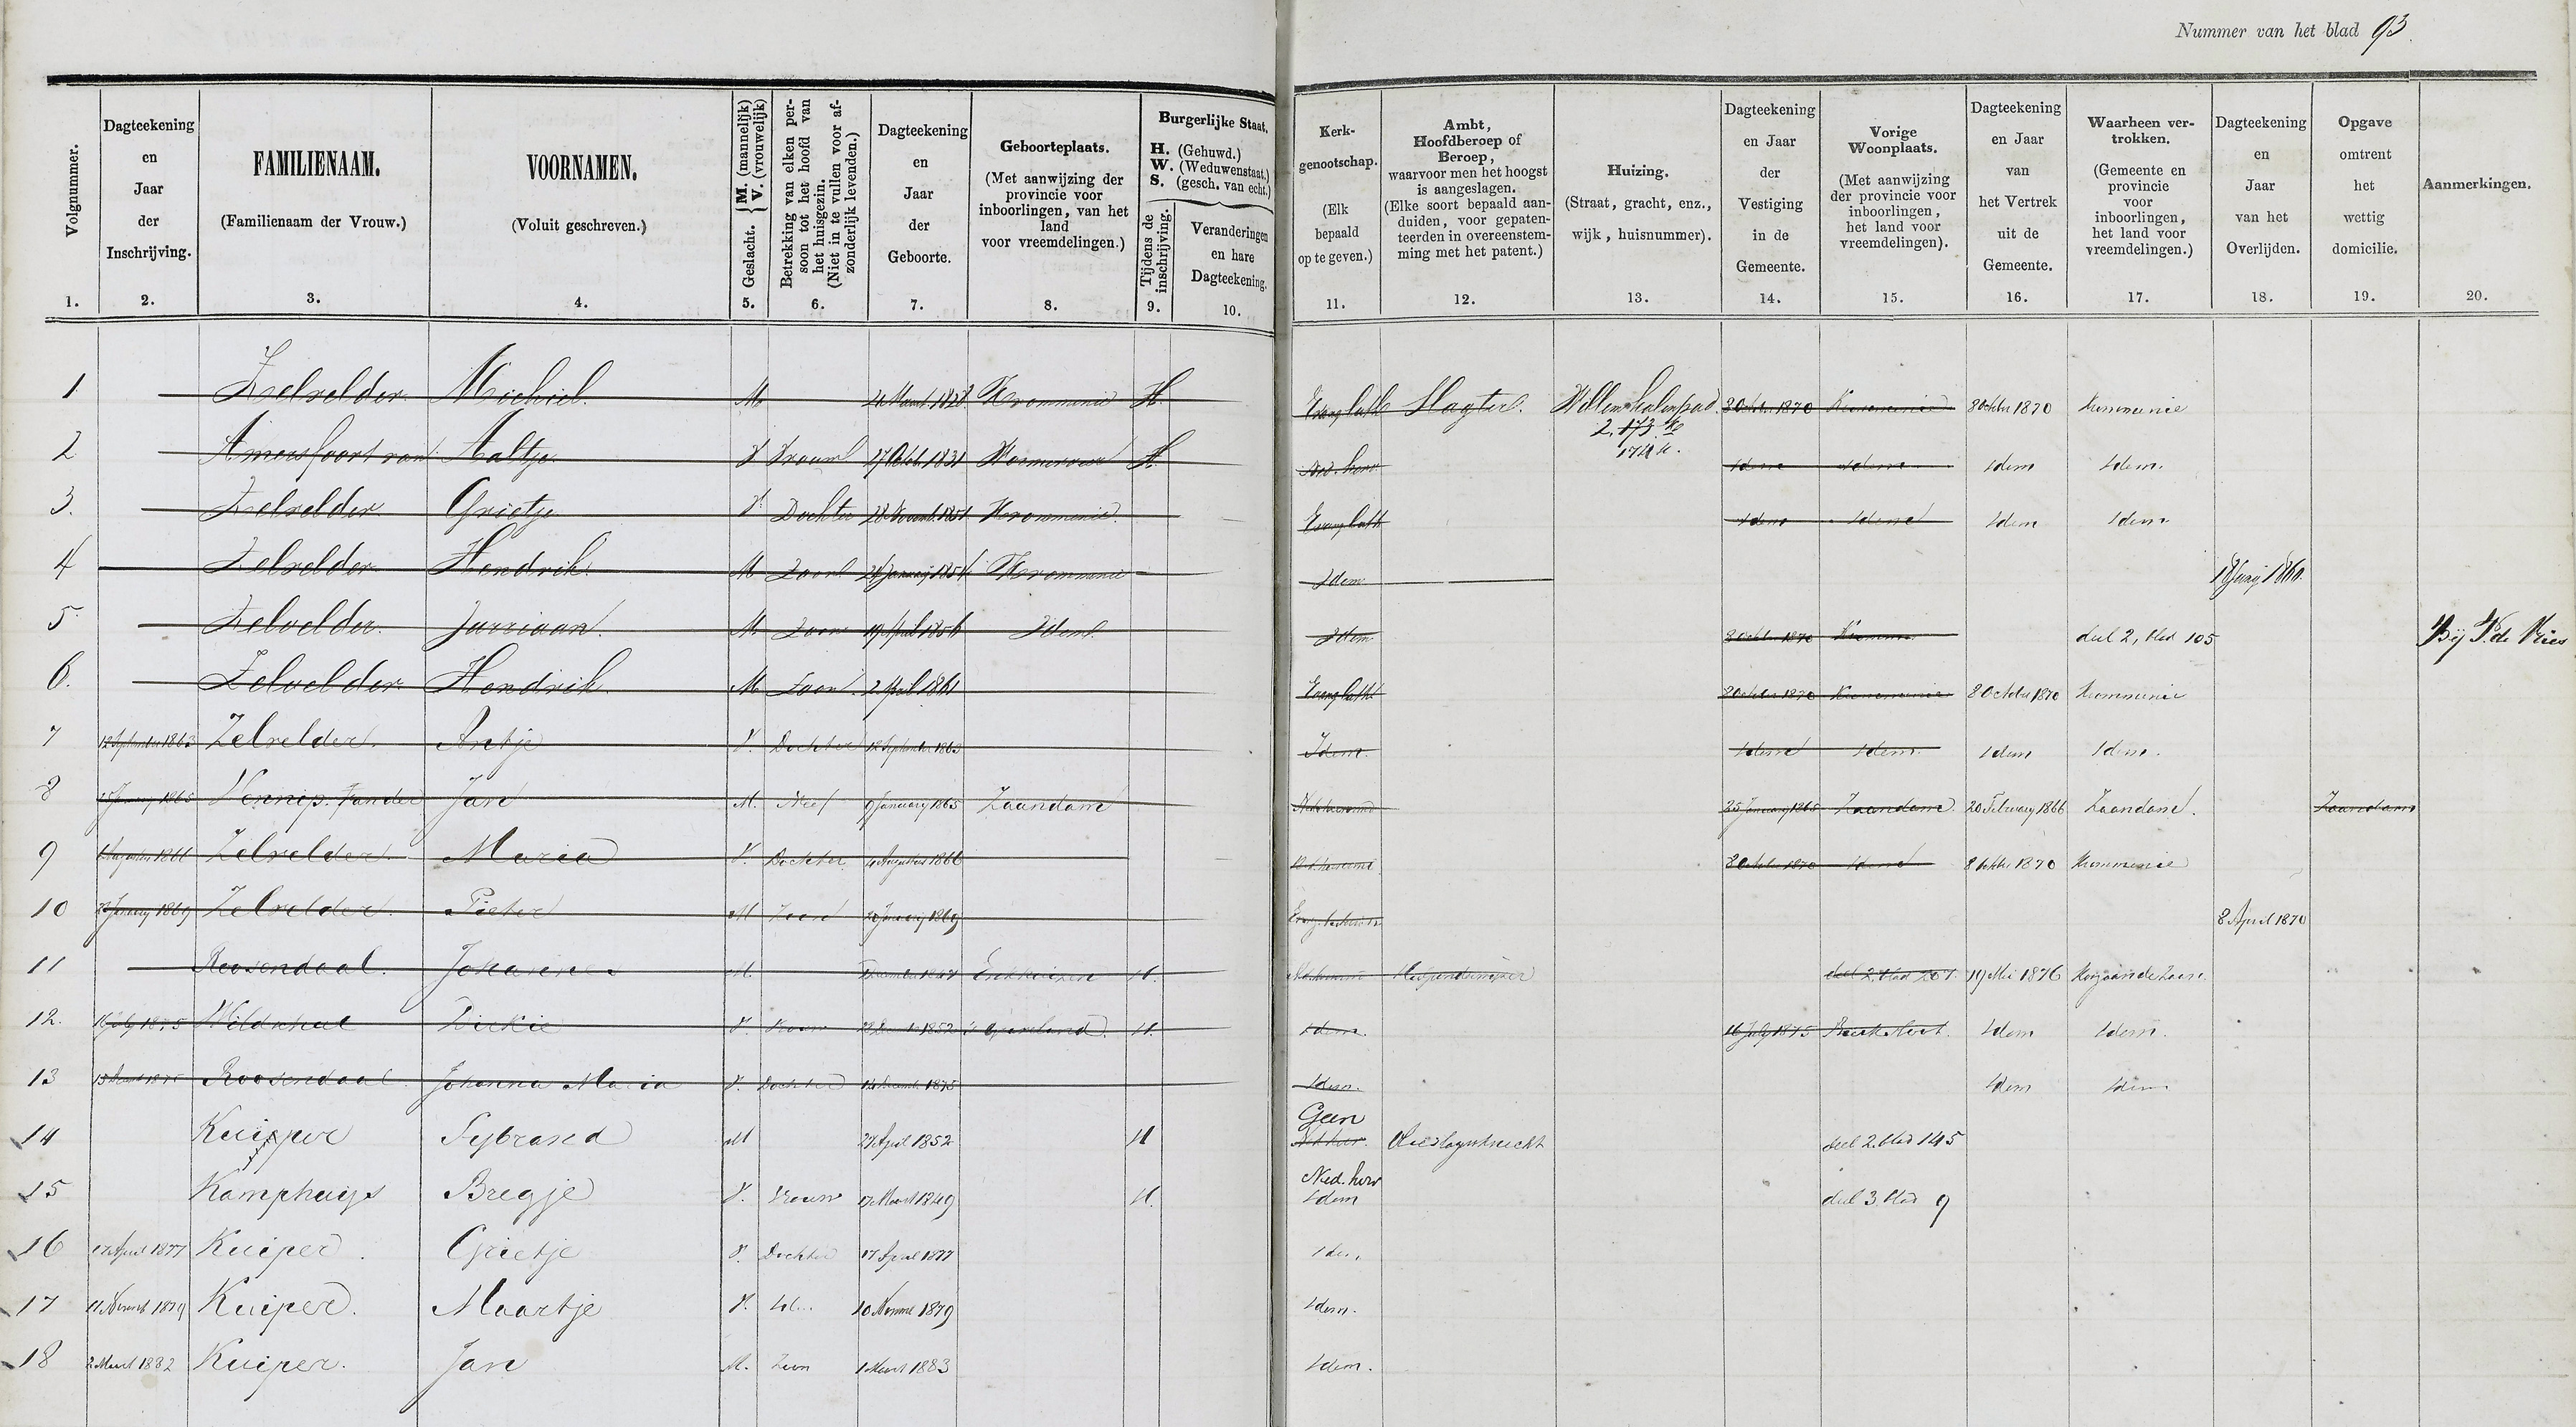 Nummer van het blad 93.
Volgnummer. 1.
Dagteekening en Jaar der Inschrijving. 2.
FAMILIENAAM. (Familienaam der Vrouw.) 3.
VOORNAMEN. (Voluit geschreven.) 4.
Geslacht. { M. (mannelijk) V. (vrouwelijk) 5.
Betrekking van elken persoon tot het hoofd van het huisgezin. (Niet in te vullen voor afzonderlijk levenden.) 6.
Dagteekening en Jaar der Geboorte. 7.
Geboorteplaats. (Met aanwijzing der provincie voor inboorlingen, van het land voor vreemdelingen.) 8.
Burgerlijke Staat. H. (Gehuwd.) W. (Weduwenstaat.) S. (gesch. van echt.)
Tijdens de inschrijving. 9.
Veranderingen en hare Dagteekening. 10.
Kerkgenootschap. (Elk bepaald op te geven.) 11.
Ambt, Hoofdberoep of Beroep, waarvoor men het hoogst is aangeslagen. (Elke soort bepaald aanduiden, voor gepatenteerden in overeenstemming met het patent.) 12.
Huizing. (Straat, gracht, enz., wijk, huisnummer). 13.
Dagteekening en Jaar der Vestiging in de Gemeente. 14.
Vorige Woonplaats. (Met aanwijzing der provincie voor inboorlingen, het land voor vreemdelingen). 15.
Dagteekening en Jaar van het Vertrek uit de Gemeente. 16.
Waarheen vertrokken. (Gemeente en provincie voor inboorlingen, het land voor vreemdelingen.) 17.
Dagteekening en Jaar van het Overlijden. 18.
Opgave omtrent het wettig domicilie. 19.
Aanmerkingen. 20.
1 Zelvelder Michiel. M Maart 1828 Krommenie H. Evang Luth Slagter. 8 October 1870 Krommenie 8 Octbr 1870 Krommenie
2. 173
174
2 Amersfoort van Aaltje V Vrouw 27 Octob. 1831 Wormerveer H. Ned. herv. Idem Idem Idem Idem.
3. Zelvelder Grietje V Dochter 28 Novemb. 1851 Krommenie Evang Luth Idem Idem Idem Idem
4 Zelvelder Hendrik M Zoon January 1854 Krommenie Idem 1860.
5 Zelvelder. Jurriaan. M Zoon 19 April 1856 Idem Idem 8 Octbr 1870 deel 2, blad 105 Bij de Vries
6. Zelvelder Hendrik. M Zoon 2 April 1861 Evang Luth 8 October 1870 Krommenie 8 October 1870 Krommenie
7 12 September 1863 Zelvelder. Antje V. Dochter 12 September 1863 Idem. Idem Idem. Idem Idem.
8 25 January 1865 Vennip. van der Jan M. Neef 9 January 1865 Zaandam Ned hervormd 25 January 1865 Zaandam. 20 February 1866 Zaandam. Zaandam
9 Augustus 1866 Zelvelder. Maria V. Dochter 4 Augustus 1866 Ned. hervormd 8 October 1870 Idem 8 Octbr. 1870 Krommenie
10 January 1869 Zelvelder. Pieter M Zoon January 1869 8 April 1870
11 Roosendaal. Johannes M. Enkhuizen H. deel 2. blad 207. 19 Mei 1876 Koog aan de Zaan.
12. 16 July 1875 Dirkie V. Vrouw 1852 H. Idem. 16 July 1875 Idem Idem.
13 Roosendaal Johanna Maria V. Dochter 14 Decemb. 1875 Idem. Idem Idem
14 Kuiper Sybrand M 27 April 1852 H Geen Ned herv. Olieslagersknecht deel 2. blad 145
15 Kamphuijs Bregje V. Vrouw 17 Maart 1849 H. Ned. herv Idem deel 3 blad 9
16 17 April 1877 Kuiper Grietje V. Dochter 17 April 1877 Idem
17 11 Novemb 1879 Kuiper. Maartje V. Idem 10 Novemb 1879 Idem.
18 2 Maart 1882 Kuiper. Jan M. Zoon 1 Maart 1883 Idem.